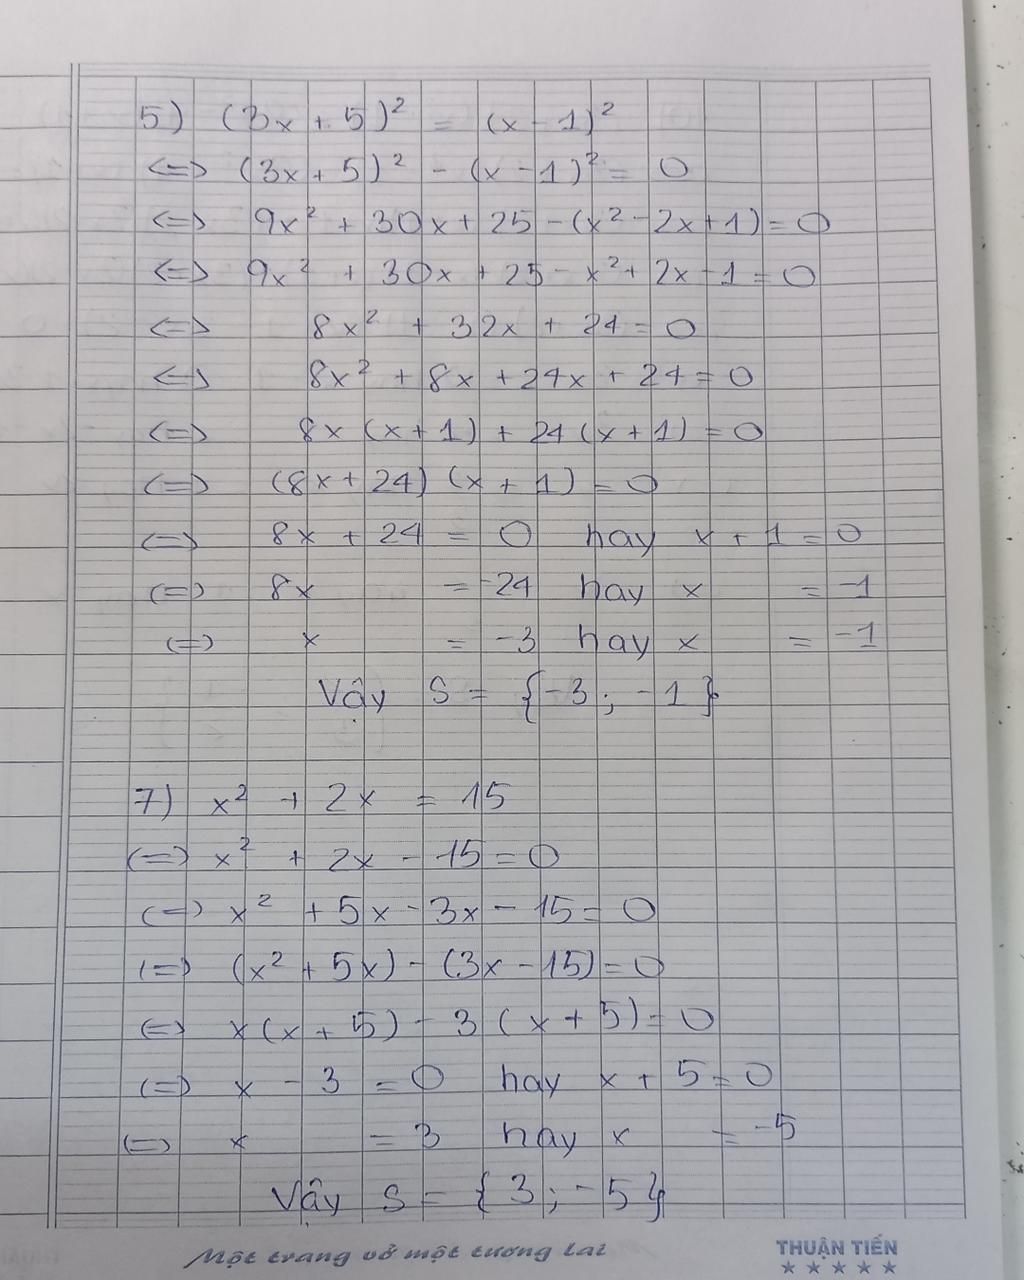 5) (3x + 5)² = (x - 1)²
<=> (3x + 5)² - (x - 1)² = 0
<=> 9x² + 30x + 25 - (x² - 2x + 1) = 0
<=> 9x² + 30x + 25 - x² + 2x - 1 = 0
<=> 8x² + 32x + 24 = 0
<=> 8x² + 8x + 24x + 24 = 0
<=> 8x (x + 1) + 24 (x + 1) = 0
<=> (8x + 24) (x + 1) = 0
<=> 8x + 24 = 0 hay x + 1 = 0
<=> 8x = -24 hay x = -1
<=> x = -3 hay x = -1
Vậy S = {-3; -1}
7) x² + 2x = 15
<=> x² + 2x - 15 = 0
<=> x² + 5x - 3x - 15 = 0
<=> (x² + 5x) - (3x - 15) = 0
<=> x (x + 5) - 3 (x + 5) = 0
<=> x - 3 = 0 hay x + 5 = 0
<=> x = 3 hay x = -5
Vậy S = {3; -5}
Một trang vở một tương lai THUẬN TIẾN
★ ★ ★ ★ ★